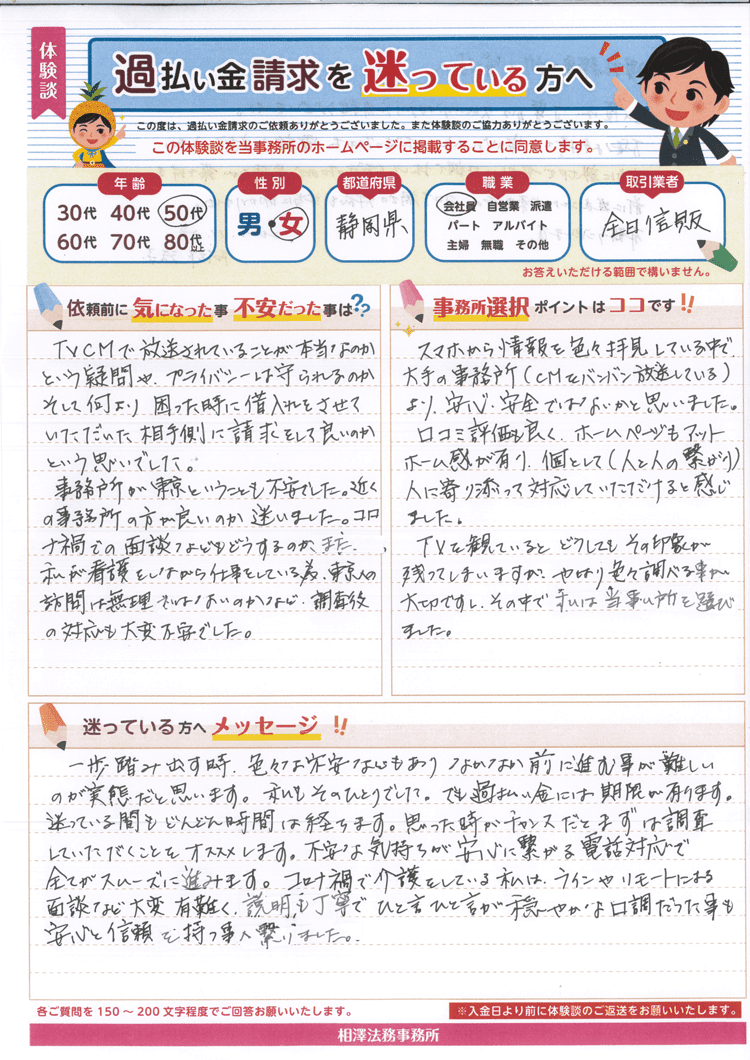 体験談
過払い金請求を迷っている方へ
この度は、過払い金請求のご依頼ありがとうございました。また体験談のご協力ありがとうございます。
この体験談を当事務所のホームページに掲載することに同意します。
年齢
30代 40代 50代
60代 70代 80代以上
性別
男・女
都道府県
静岡県
職業
会社員 自営業 派遣
パート アルバイト
主婦 無職 その他
取引業者
全日信販
お答えいただける範囲で構いません。
依頼前に気になった事 不安だった事は??
TVCMで放送されていることが本当なのか
という疑問や、プライバシーは守られるのか
そして何より困った時に借入れをさせて
いただいた相手側に請求をして良いのか
という思いでした。
事務所が東京ということも不安でした。近く
の事務所の方が良いのか迷いました。コロ
ナ禍での面談などもどうするのか、また、
私が看護をしながら仕事をしている為、東京への
訪問は無理ではないのかなど、調査後
の対応も大変不安でした。
事務所選択ポイントはココです!!
スマホから情報を色々拝見している中で、
大手の事務所(CMをバンバン放送している)
より、安心・安全ではないかと思いました。
口コミ評価も良く、ホームページもアット
ホーム感が有り、個として(人と人の繋がり)
人に寄り添って対応していただけると感じ
ました。
TVを観ていると どうしてもその印象が
残ってしまいますが、やはり色々調べる事が
大切ですし、その中で私は当事務所を選び
ました。
迷っている方へメッセージ!!
一歩踏み出す時、色々な不安な心もあり なかなか前に進む事が難しい
のが実態だと思います。私もそのひとりでした。でも過払い金には期限が有ります。
迷っている間もどんどん時間は経ちます。思った時がチャンスだとまずは調査
していただくことをオススメします。不安な気持ちが安心に繋がる電話対応で
全てがスムーズに進みます。コロナ禍で介護をしている私は、ラインやリモートによる
面談など大変有難く、説明も丁寧でひと言ひと言が穏やかな口調だった事も
安心と信頼を持つ事へ繋がりました。
各ご質問を150~200文字程度でご回答お願いいたします。
※入金日より前に体験談のご返送をお願いいたします。
相澤法務事務所